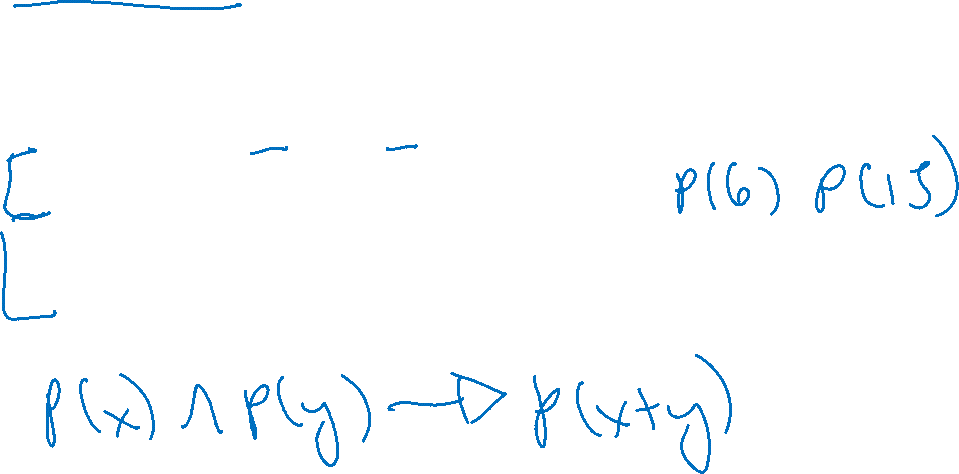 P(6) P(15)
P(x) ∧ P(y) → P(x+y)